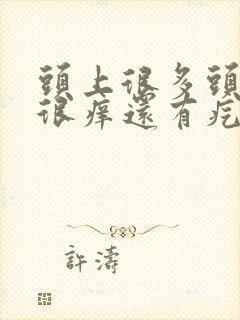 頭上很多頭
很痒還有疙
許濤